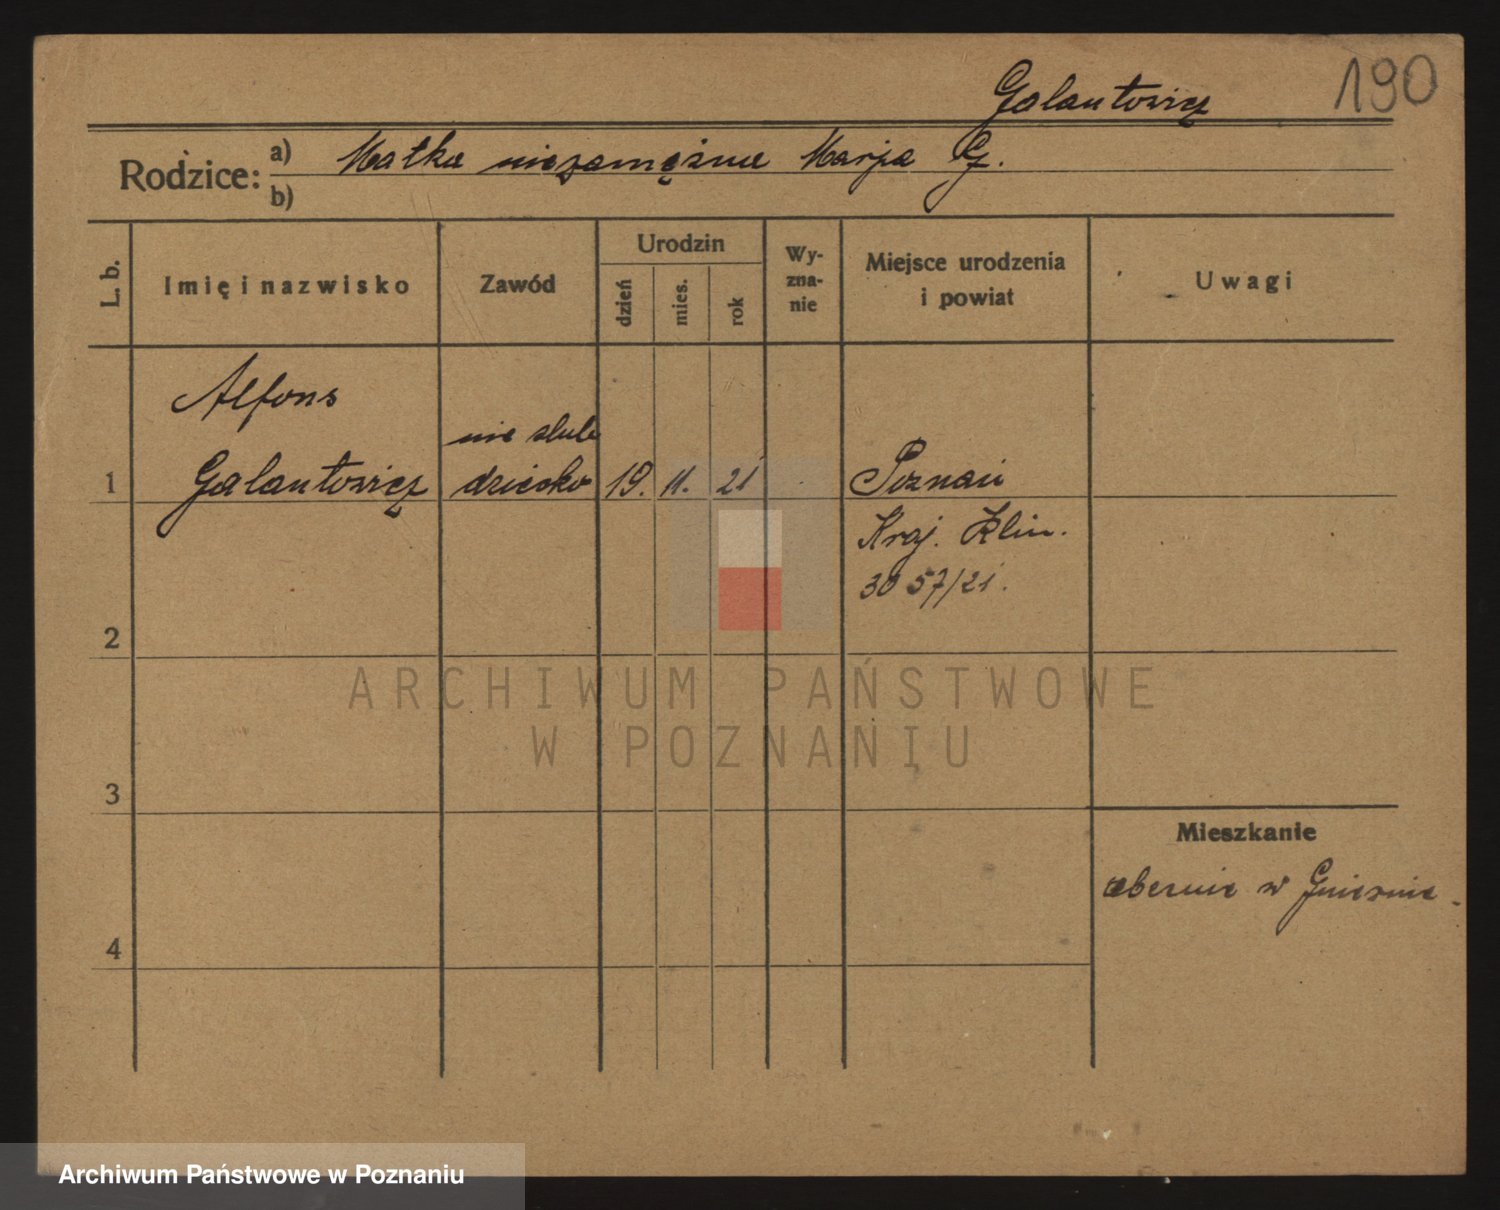 190
Galantowicz
Rodzice: a) Matka niezamężna Marja G.
b)
L. b.
Imię i nazwisko
Zawód
Urodzin
dzień
mies.
rok
Wy-
zna-
nie
Miejsce urodzenia
i powiat
Uwagi
Alfons
nie ślub
1 Galantowicz dziecko 19. 11. 21 Poznań
Kraj. Klin.
3057/21.
2
ARCHIWUM PAŃSTWOWE
W POZNANIU
3
Mieszkanie
obecnie w Gnieźnie.
4
Archiwum Państwowe w Poznaniu